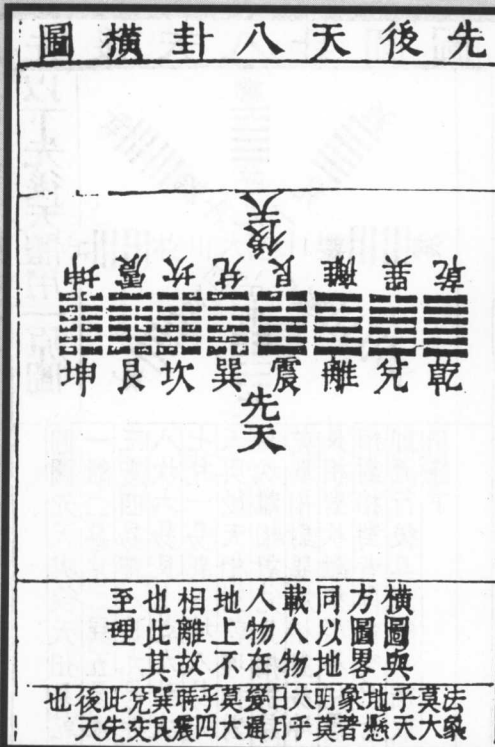 先後天八卦橫圖
後天
乾巽離艮兌坎震坤
乾兌離震巽坎艮坤
先天
橫圖與
方圖畧
同以地
載人物
人物在
地上不
相離故
也此其
至理
法象
莫大
乎天
地懸
象著
明莫
大乎
日月
變通
莫大
乎四
時震
巽艮
兌交
此先
後天
也